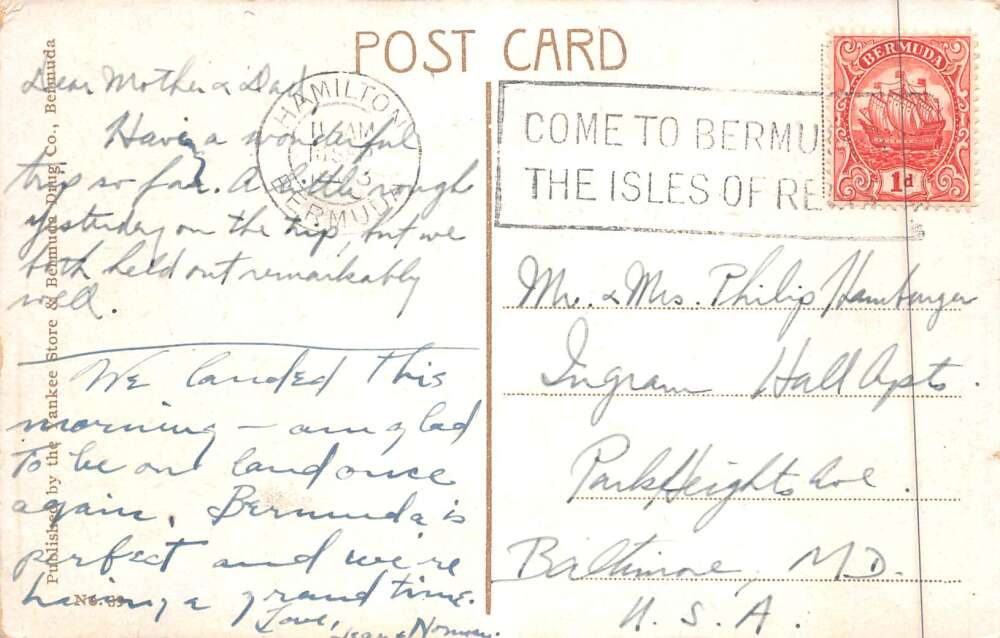 POST CARD
Dear Mother & Dad,
Having a wonderful
trip so far. A little rough
yesterday on the trip, but we
both held out remarkably
well.
We landed this
morning – am glad
to be on land once
again. Bermuda is
perfect and we're
having a grand time.
Love,
Jean & Norman.
Published by the Yankee Store & Bermuda Drug Co., Bermuda
HAMILTON
11 AM
BERMUDA
COME TO BERMU
THE ISLES OF RE
BERMUDA
1d
Mr. & Mrs. Philip Hamburger
Ingram Hall Apts.
Park Heights Ave.
Baltimore, M.D.
U.S.A.